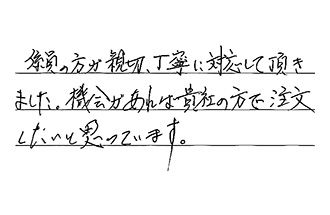 係員の方が親切、丁寧に対応して頂き
ました。機会があれば貴社の方で注文
したいと思っています。